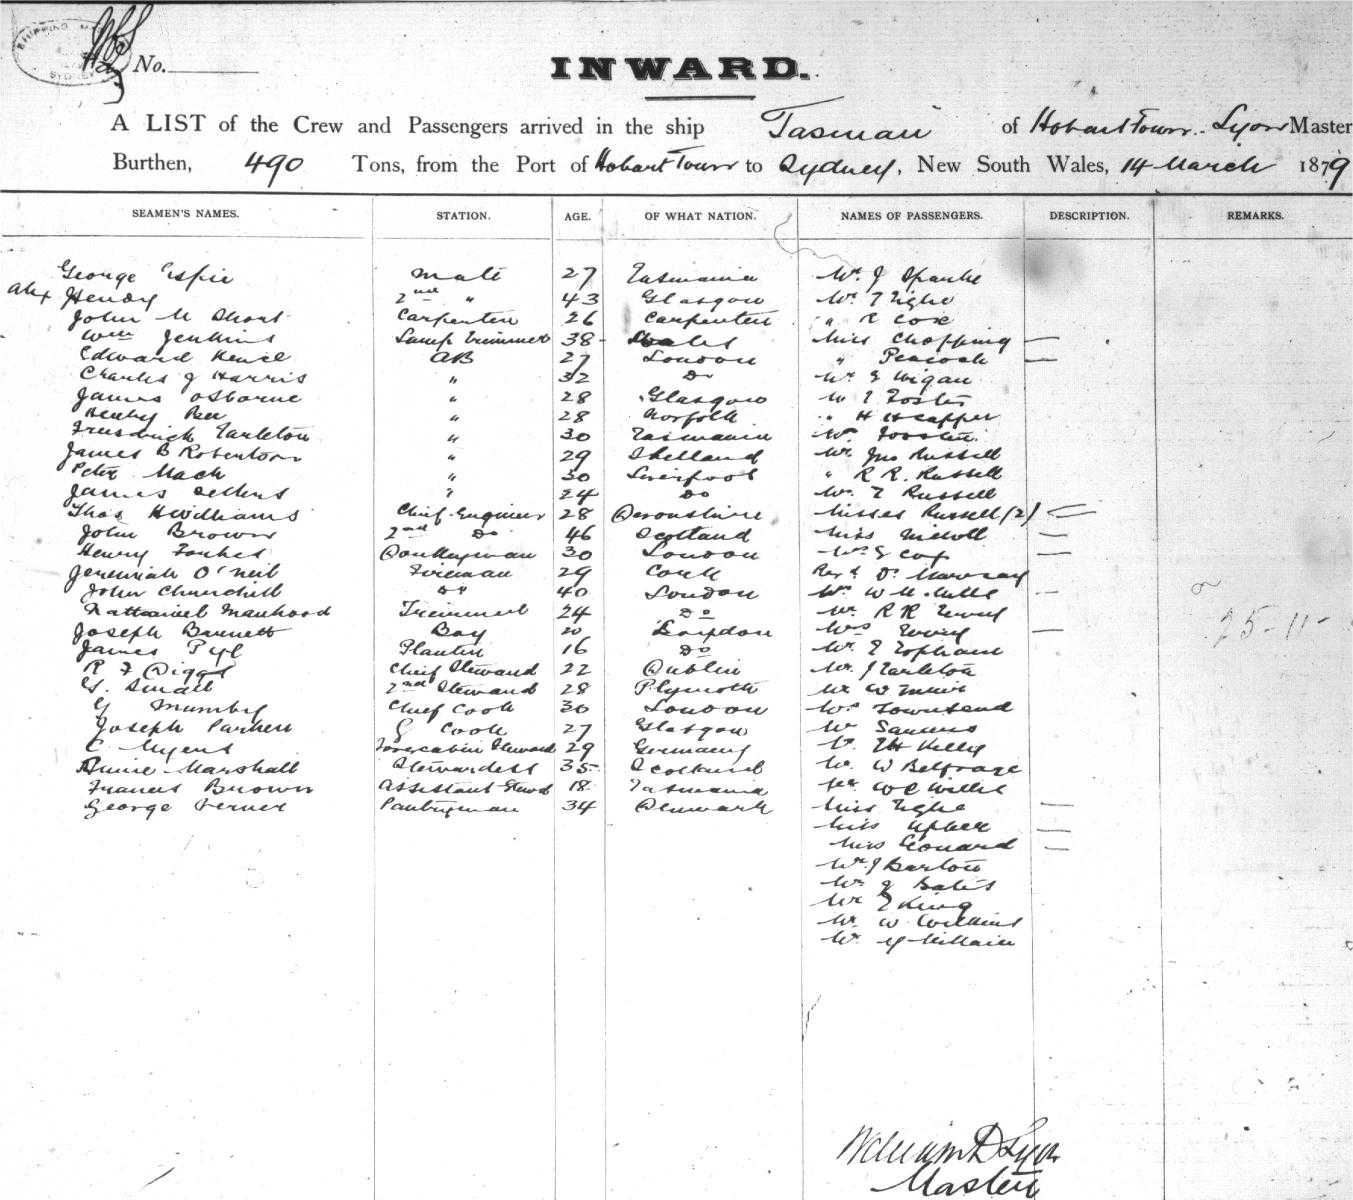 SHIPPING
SYDNEY
No.
INWARD.
A LIST of the Crew and Passengers arrived in the ship Tasman of Hobart Town. Lyon Master
Burthen, 490 Tons, from the Port of Hobart Town to Sydney, New South Wales, 14 March 1879
SEAMEN'S NAMES. STATION. AGE. OF WHAT NATION. NAMES OF PASSENGERS. DESCRIPTION. REMARKS.
George Espie Mate 27 Tasmania Mr J
Alex Hendry 2nd " 43 Glasgow Mr T Tighe
John M Short Carpenter 26 Carpenten " R Cox
Wm Jenkins Lamp Trimmer 38 Wales Miss Chopping —
Edward AB 27 London " Peacock —
Charles J Harris " 32 Do Mr E Wigan
James Osborne " 28 Glasgow Mr T Foster
Henry " 28 Norfolk " H
Frederick Tarleton " 30 Tasmania Mr
James B Robertson " 29 Shetland Mr Jno Russell
Peter Mack " 30 Liverpool " R R. Russell
James Sellers " 24 Do Mr T Russell
Thos H Williams Chief Engineer 28 Devonshire Misses Russell (2)
John Brown 2nd Do 46 Scotland Miss —
Henry Forbes Donkeyman 30 London Cox —
Jeremiah O'Neil Fireman 29 Cork Revd Dr Murray
John Churchill Do 40 London Mr W H Mills —
Nathaniel Manhood Trimmer 24 Do Mr R R
Joseph Burnett Boy London Mrs —
James Pyl 16 Do Mr E Topham
R F Diggs Chief Steward 22 Dublin Mr J Tarleton
G. Small 2nd Steward 28 Plymouth Mr W
G Mumby Chief Cook 30 London Townsend
Joseph Parker 2 Cook 27 Glasgow Mr
C Myers Forecabin Steward 29 Germany Mr TH Kelly
Annie Marshall Stewardess 35 Scotland Mr W Belfrage
Francis Brown Assistant Stewd 18 Tasmania Mr W C Willis
George Verner Pantryman 34 Denmark Miss Tighe —
Miss Upher —
Miss Leonard —
Mr J Barlow
Mr J Bates
Mr King
Mr W Collins
Mr
25-11-
William D Lyon
Master